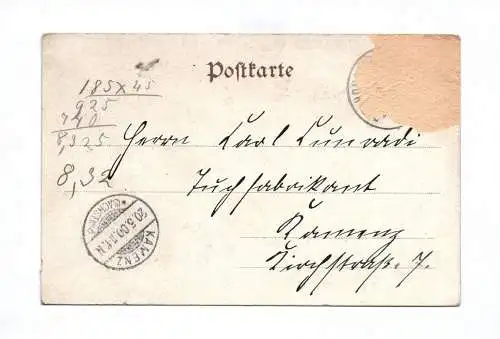 Postkarte
185 x 45
925
740
8,325
8,32
Herrn Carl Cunradi
Tuchfabrikant
Kamenz
Kirchstraße 7.
KAMENZ
(SACHSEN)
20.5.00.